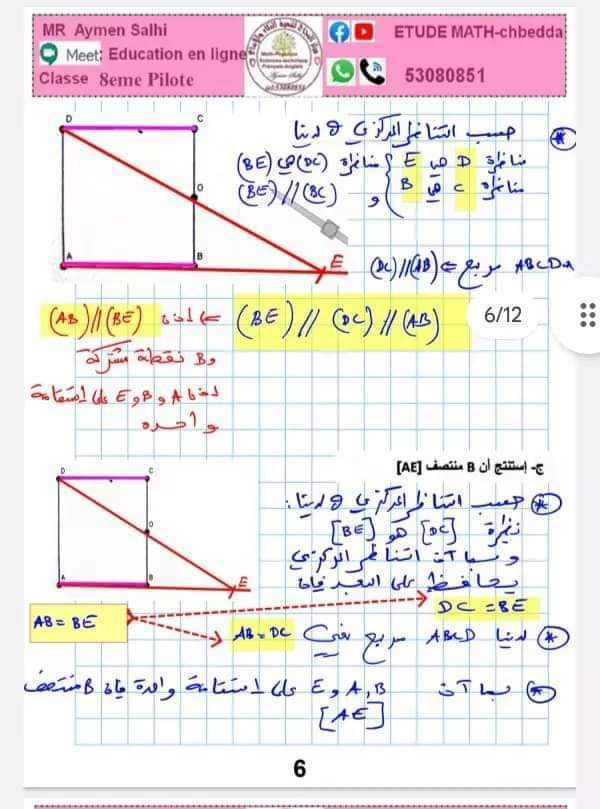 MR Aymen Salhi
ETUDE MATH-chbedda
Meet: Education en ligne
Classe 8eme Pilote
53080851
D
C
O
A
B
E
حسب التناظر المركزي لدينا
مناظرة D هي E
مناظرة C هي B
مناظرة (DC) هي (BE)
و (BE) // (BC)
ABCD مربع ⇐ (DC) // (AB)
(BE) // (DC) // (AB)
6/12
⇐ إذن (AB) // (BE)
وB نقطة مشتركة
إذن A و B و E على إستقامة
واحدة
ج- إستنتج أن B منتصف [AE]
D
C
O
A
B
E
حسب التناظر المركزي لدينا:
نظيرة [DC] هو [BE]
وبما أن التناظر المركزي
يحافظ على البعد فإن
DC = BE
AB = BE
لدينا ABCD مربع يعني AB = DC
بما أن A, B و E على إستقامة واحدة فإن B منتصف
[AE]
6